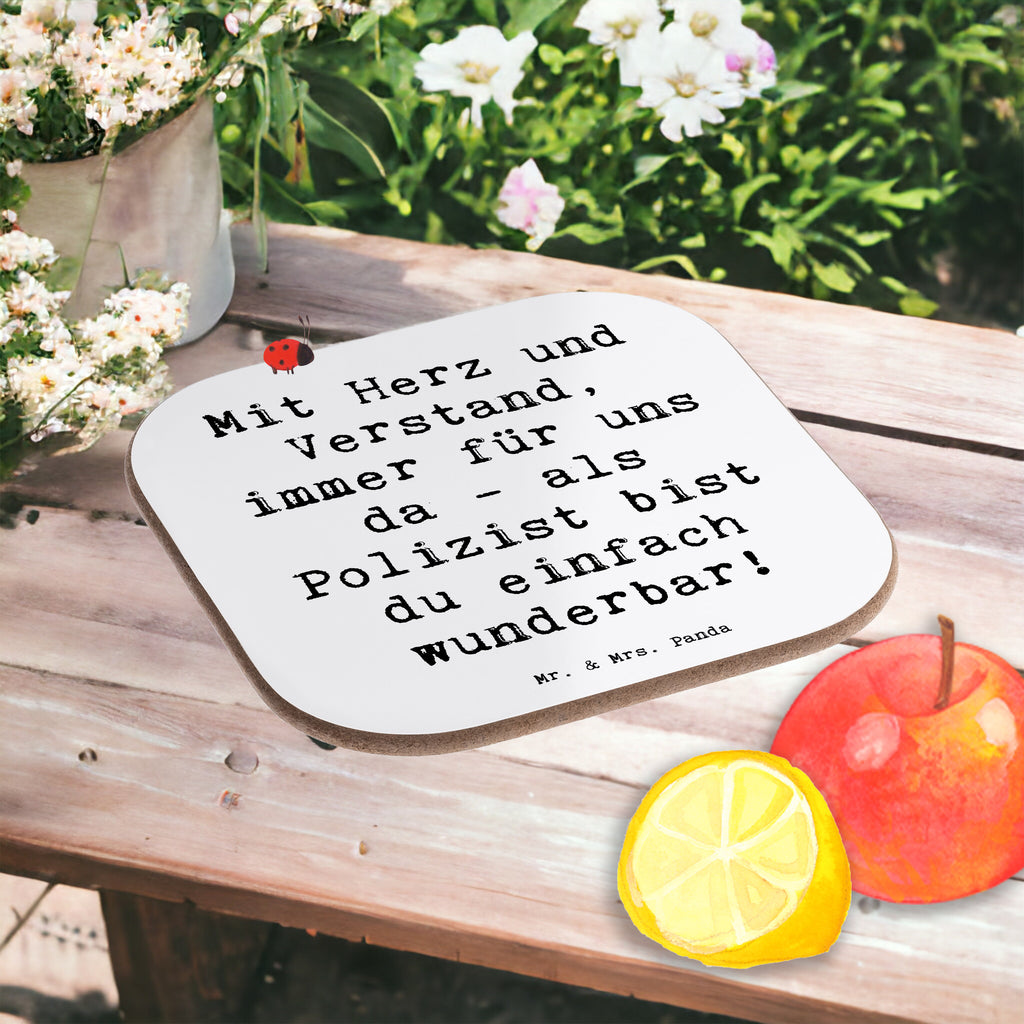 Mit Herz und
Verstand,
immer für uns
da - als
Polizist bist
du einfach
wunderbar!
Mr. & Mrs. Panda